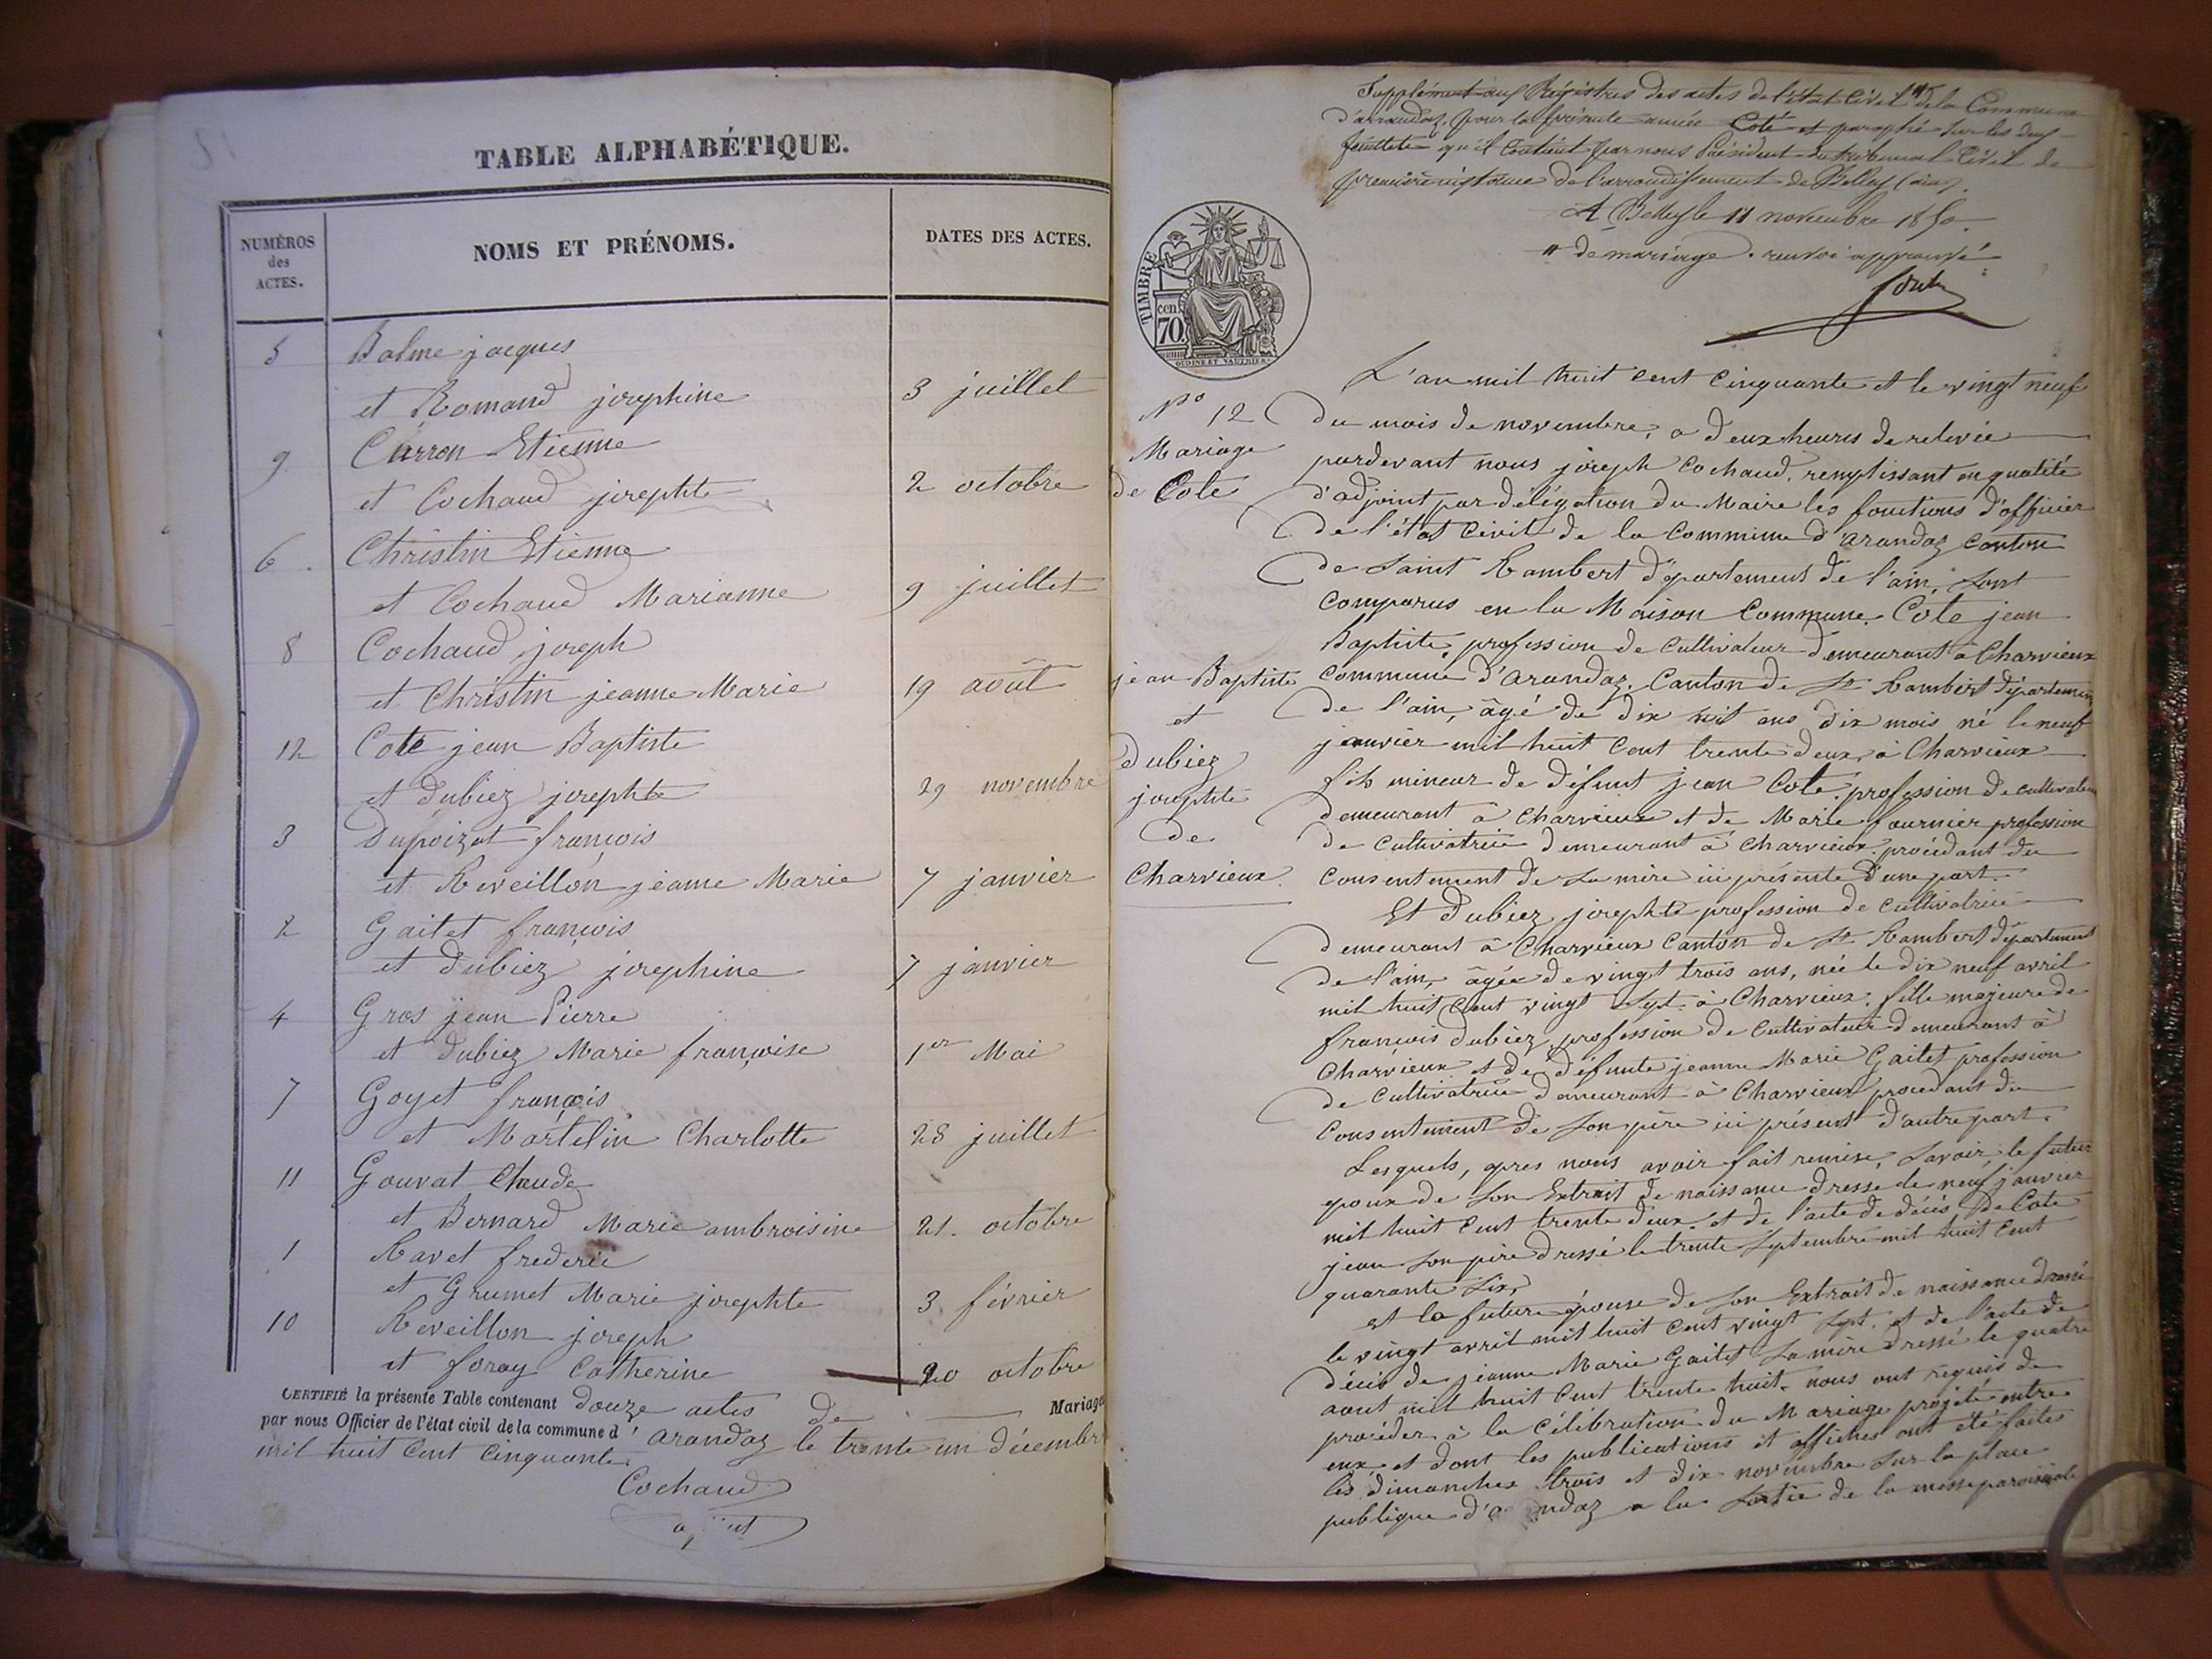 TABLE ALPHABÉTIQUE.
NUMÉROS
des
ACTES.
NOMS ET PRÉNOMS.
DATES DES ACTES.
5 Balme jacques
et Romand josephine 3 juillet
9 Carron Etienne
et Cochaud josephte 2 octobre
6 Christin Etienne
et Cochaud Marianne 9 juillet
8 Cochaud joseph
et Christin jeanne Marie 19 août
12 Cote jean Baptiste
et dubiez josephte 29 novembre
3 Dupoizat françois
et Reveillon jeanne Marie 7 janvier
2 Gaitet françois
et dubiez josephine 7 janvier
4 Gros jean Pierre
et dubiez Marie françoise 1er Mai
7 Goyet françois
et Martelin Charlotte 28 juillet
11 Gouvat Claude
et Bernard Marie ambroisine 21. octobre
1 Ravet frederic
et Grumet Marie josephte 3 février
10 Reveillon joseph
et foray Catherine 20 octobre
CERTIFIÉ la présente Table contenant douze actes de Mariage
par nous Officier de l'état civil de la commune d'arandaz le trente un décembre
mil huit cent cinquante
Cochaud
Supplément aux Régistres des actes de l'état civil " de la Commune
d'arandaz, pour la présente année Coté et paraphé sur les deux
feuillets qu'il contient par nous Président du tribunal Civil de
première instance de l'arrondissement de Belley (ain).
A Belley le 11 novembre 1850.
" de mariage. renvoi approuvé
TIMBRE
cen.
70.
OUDINÉ ET VAUTHIER
No 12
Mariage
de Cote
jean Baptiste
et
dubiez
josephte
de
Charvieux
L'an mil huit cent cinquante et le vingt neuf
du mois de novembre, a deux heures de relevée
pardevant nous joseph Cochaud, remplissant en qualité
d'adjoint par délégation du Maire les fonctions d'officier
de l'état Civil de la commune d'arandaz canton
de Saint Rambert département de l'ain, sont
comparus en la Maison Commune. Cote jean
Baptiste, profession de cultivateur demeurant à Charvieux
commune d'arandaz. Canton de St Rambert département
de l'ain, âgé de dix huit ans dix mois né le neuf
janvier mil huit cent trente deux, à Charvieux
fils mineur de défunt jean Cote profession de cultivateur
demeurant à Charvieux et de Marie fournier profession
de cultivatrice demeurant à Charvieux procédant du
consentement de sa mère ici présente d'une part.
Et dubiez josephte profession de cultivatrice
demeurant à Charvieux Canton de St Rambert département
de l'ain, âgée de vingt trois ans, née le dix neuf avril
mil huit cent vingt sept à Charvieux. fille majeure de
françois dubiez, profession de cultivateur demeurant à
Charvieux et de défunte jeanne Marie Gaitet profession
de cultivatrice demeurant à Charvieux procédant du
consentement de son père ici présent d'autre part.
Lesquels, apres nous avoir fait remise, savoir, le futur
epoux de son Extrait de naissance dressé le neuf janvier
mil huit cent trente deux. et de l'acte de décès de Cote
jean son père dressé le trente septembre mil huit cent
quarante six,
et la future épouse de son Extrait de naissance dressé
le vingt avril mil huit cent vingt sept. et de l'acte de
décès de jeanne Marie Gaitet sa mère dressé le quatre
aout mil huit cent trente huit. nous ont requis de
procéder à la célébration du Mariage projeté entre
eux et dont les publications et affiches ont été faites
les dimanches trois et dix novembre sur la place
publique d'arandaz a la sortie de la messe paroissiale